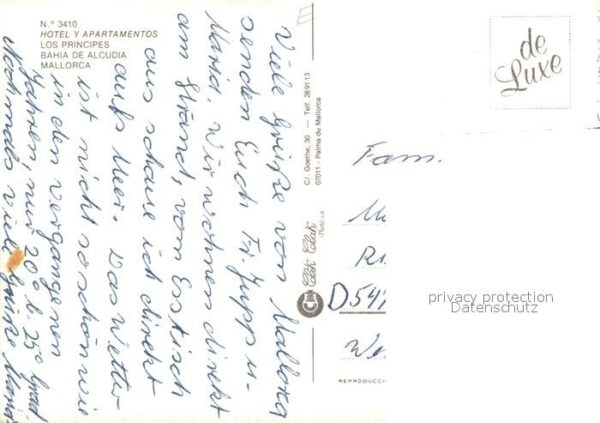 N.º 3410
HOTEL Y APARTAMENTOS
LOS PRINCIPES
BAHIA DE ALCUDIA
MALLORCA
Viele Grüße von Mallorca
senden Euch Fr. Jupp u.
Maria. Wir wohnen direkt
am Strand, vom Esstisch
aus schaue ich direkt
aufs Meer. Das Wetter
ist nicht so schön wie
in den vergangenen
Jahren, nur 20° b. 25° Grad
Nochmals viele Grüße Maria
C/. Goethe, 30 — Telf. 289113
07011 - Palma de Mallorca
Clik Clak
de Luxe
Fam.
D 541
privacy protection
Datenschutz
REPRODUCCI